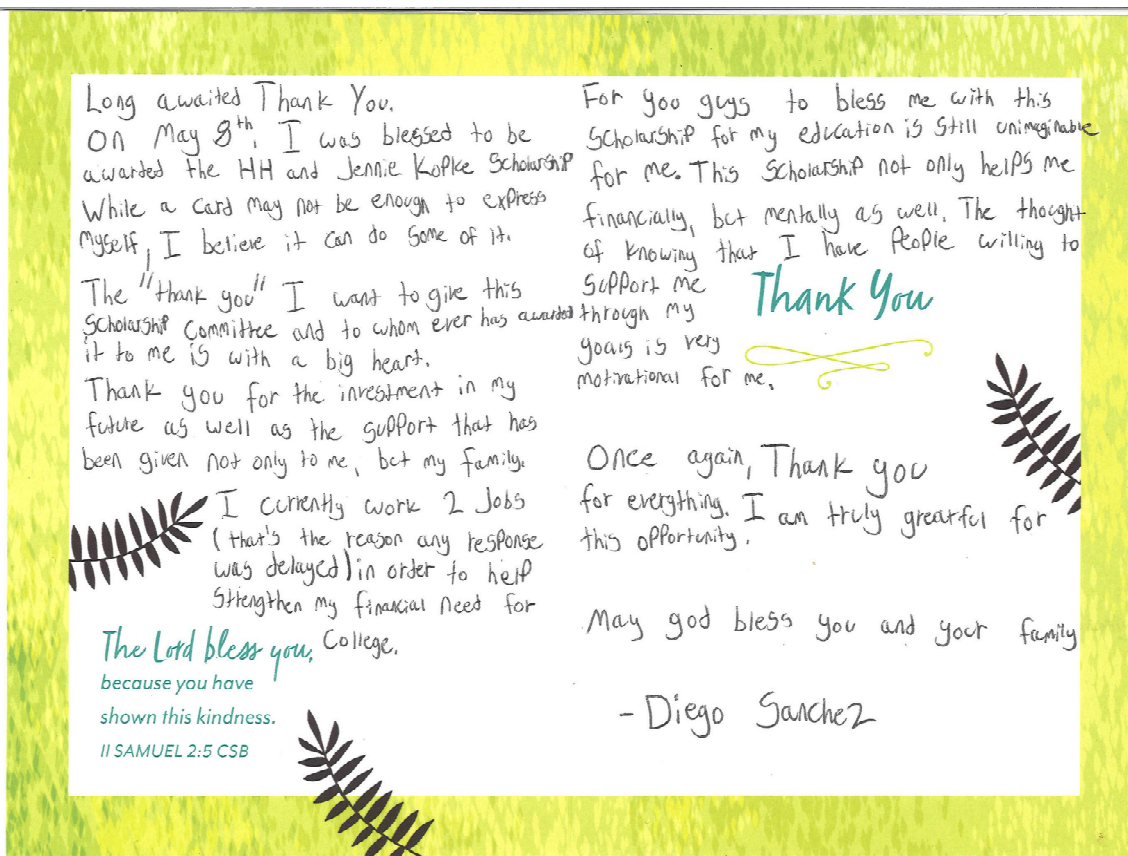 Long awaited Thank You.
On May 8th, I was blessed to be
awarded the HH and Jennie Kopke Scholarship
While a card may not be enough to express
myself, I believe it can do some of it.
The "thank you" I want to give this
Scholarship Committee and to whom ever has awarded
it to me is with a big heart.
Thank you for the investment in my
future as well as the support that has
been given not only to me, but my family.
I currently work 2 Jobs
(that's the reason any response
was delayed) in order to help
strengthen my financial need for
College.
The Lord bless you,
because you have
shown this kindness.
II SAMUEL 2:5 CSB
For you guys to bless me with this
scholarship for my education is still unimaginable
for me. This scholarship not only helps me
financially, but mentally as well. The thought
of knowing that I have People willing to
support me
through my
goals is very
motivational for me.
Thank You
Once again, Thank you
for everything. I am truly greatful for
this opportunity.
May god bless you and your family
- Diego Sanchez